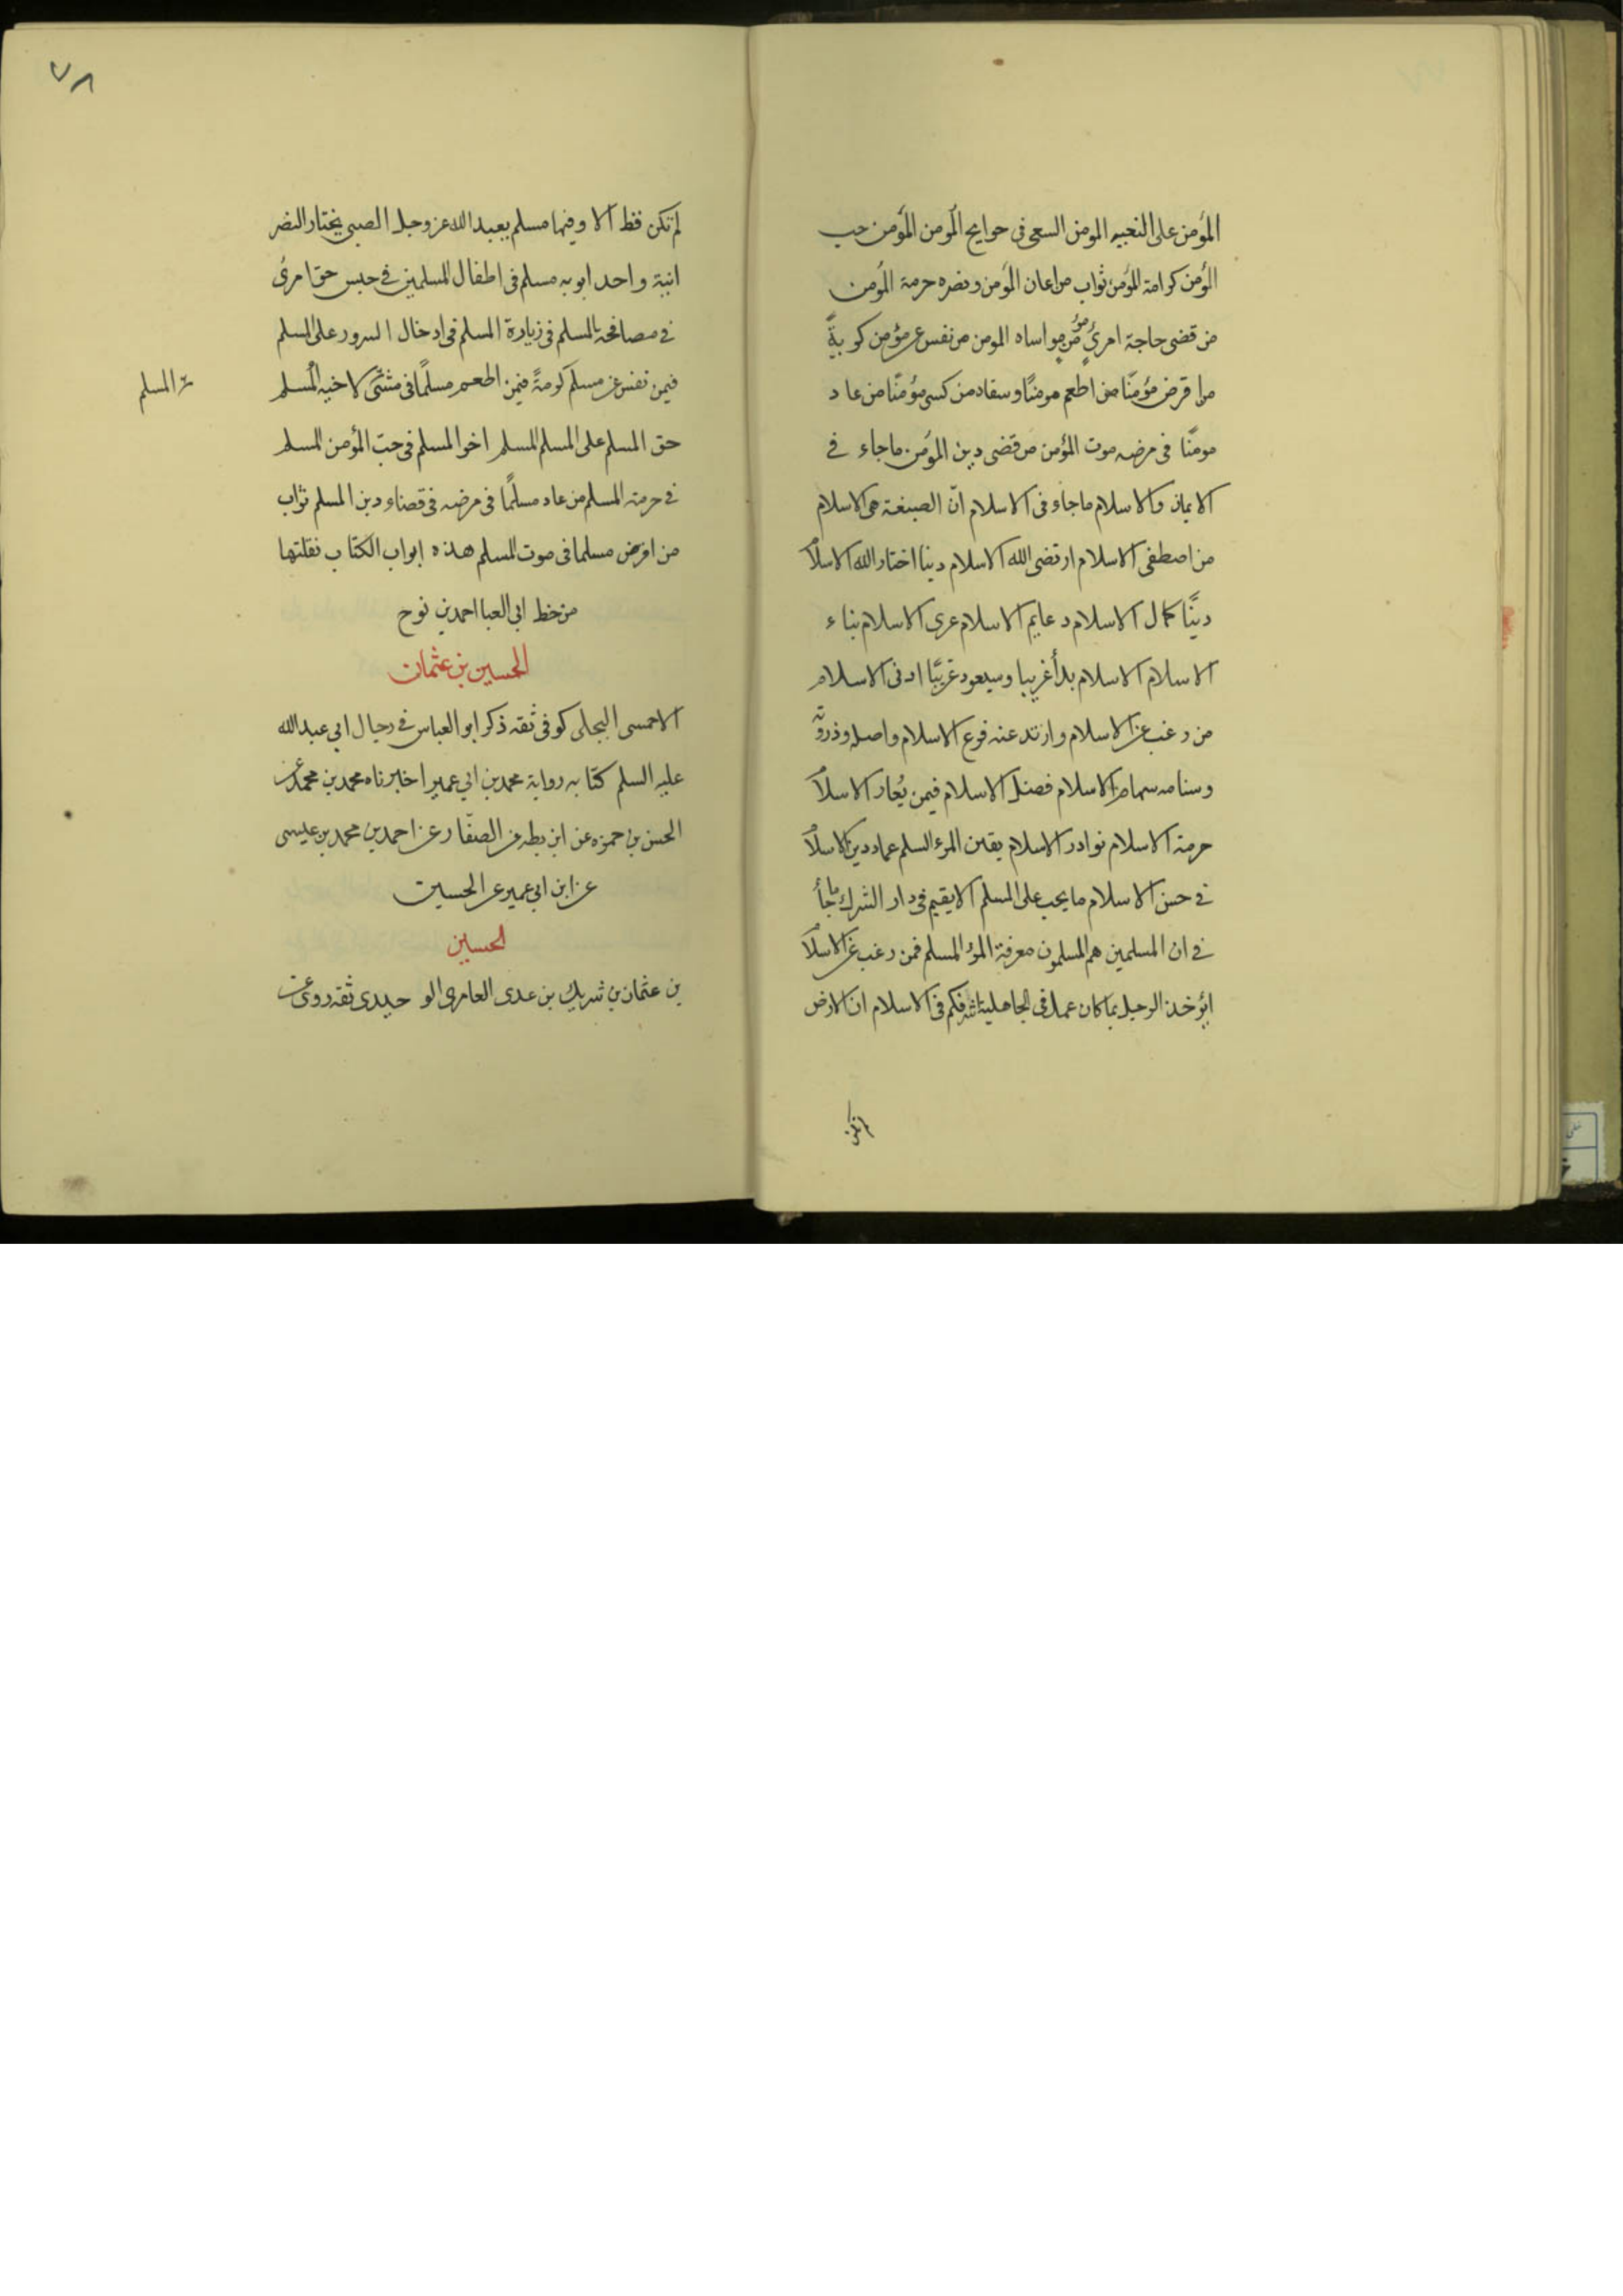 المؤمن على النحبيه المومن السعى فى حوايج المومن المؤمن حب
المؤمن كرامة المؤمن ثواب من اعان المؤمن ونصره حرمة المؤمن
من قضى حاجة امرئ مؤمن مواساه المومن من نفس عن مؤمن كربةً
من اقرض مؤمنًا من اطعم مومنًا وسقاه من كسى مؤمنًا من عاد
مومنًا فى مرضه موت المؤمن من قضى دين المؤمن ماجاء فى
الايمان والاسلام ماجاء فى الاسلام انّ الصبغة هى الاسلام
من اصطفى الاسلام ارتضى الله الاسلام دينا اختار الله الاسلام
دينًا كمال الاسلام دعايم الاسلام عرى الاسلام بناء
الاسلام الاسلام بدأ غريبا وسيعود غريبًا ادنى الاسلام
من رغب عن الاسلام وارتد عنه فرع الاسلام واصله وذروته
وسنامه سهام الاسلام فضل الاسلام فيمن يُعار الاسلام
حرمة الاسلام نوادر الاسلام يقين المرء المسلم عماد دين الاسلام
فى حسن الاسلام مايجب على المسلم الا يقيم فى دار الشرك ماجأ
فى ان المسلمين هم المسلمون معرفة المرء المسلم فمن رغب عن الاسلام
ايؤخذ الرجل بما كان عمله فى الجاهلية اشرفكم فى الاسلام ان الارض
لم تكن
٧٨
لم تكن قط الا وفيها مسلم يعبد الله عز وجل الصبى يختار النصر
انية واحد ابويه مسلم فى اطفال المسلمين فى حبس حق امرئ
فى مصافحة المسلم فى زيارة المسلم فى ادخال السرور على المسلم
فيمن نفس عن مسلم كربةً فيمن اطعم مسلمًا فى مشى لاخيه المسلم
المسلم
حق المسلم على المسلم المسلم اخو المسلم فى حبّ المؤمن المسلم
فى حرمة المسلم من عاد مسلمًا فى مرضه فى قضاء دين المسلم ثواب
من اقرض مسلما فى موت المسلم هذه ابواب الكتاب نقلتها
من خط ابى العبا احمد بن نوح
الحسين بن عثمان
الاحمسى البجلى كوفى ثقه ذكر ابو العباس فى رجال ابى عبد الله
عليه السلم كتابه رواية محمد بن ابي عمير اخابرناه محمد بن محمد عن
الحسن بن حمزه عن ابن بطه عن الصفّار عن احمد بن محمد بن عليسى
عن ابن ابى عمير عن الحسين
الحسين
بن عثمان بن شريك بن عدى العامرى الو حيدى ثقه روى عن